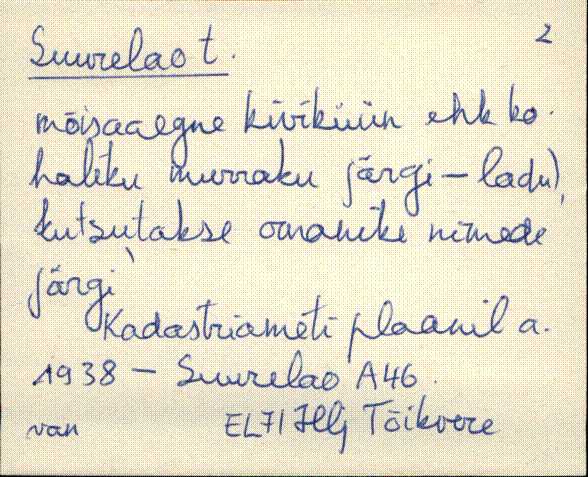 Suurelao t. 2
mõisaaegne kiviküün ehk ko-
haliku murraku järgi – ladu),
kutsutakse omanike nimede
järgi
Kadastriameti plaanil a.
1938 – Suurelao A46.
van EL71 Hlj Tõikvere